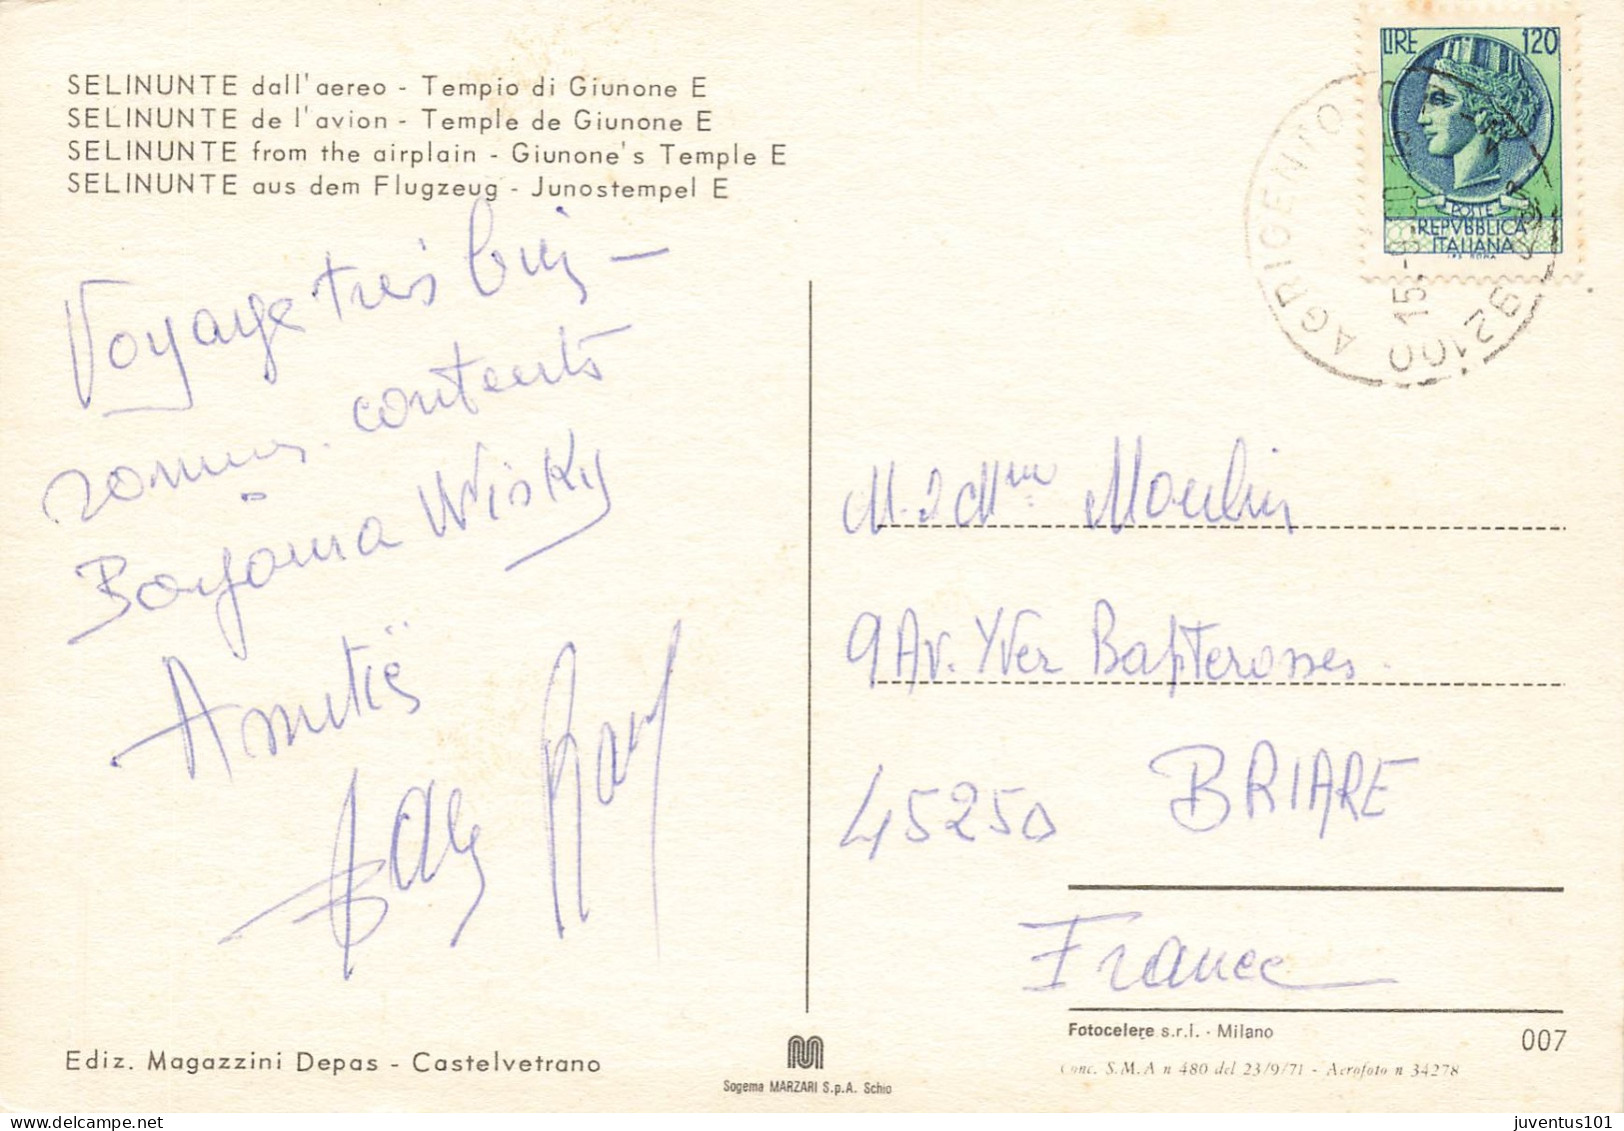 SELINUNTE dall'aereo - Tempio di Giunone E
SELINUNTE de l'avion - Temple de Giunone E
SELINUNTE from the airplain - Giunone's Temple E
SELINUNTE aus dem Flugzeug - Junostempel E
Voyage très bien -
sommes contents
Wisky
Amitiés
LIRE 120
POSTE
REPVBBLICA
ITALIANA
I.P.S. ROMA
AGRIGENTO
92100
M. & Mme Moulin
9 Av. Yver Bapterosses
45250 BRIARE
France
Fotocelere s.r.l. - Milano
007
Conc. S.M.A n 480 del 23/9/71 - Aerofoto n 34278
Ediz. Magazzini Depas - Castelvetrano
Sogema MARZARI S.p.A. Schio
juventus101